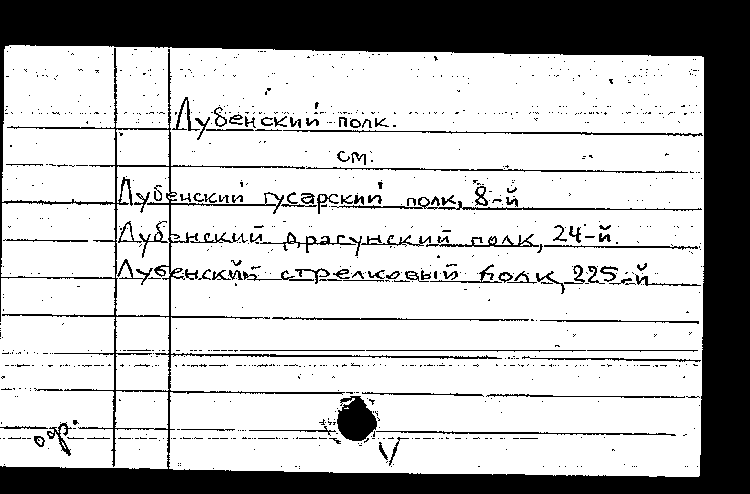 Лубенский полк.
см.
Лубенский гусарский полк, 8-й
Лубенский драгунский полк, 24-й.
Лубенский стрелковый полк, 225-й
V